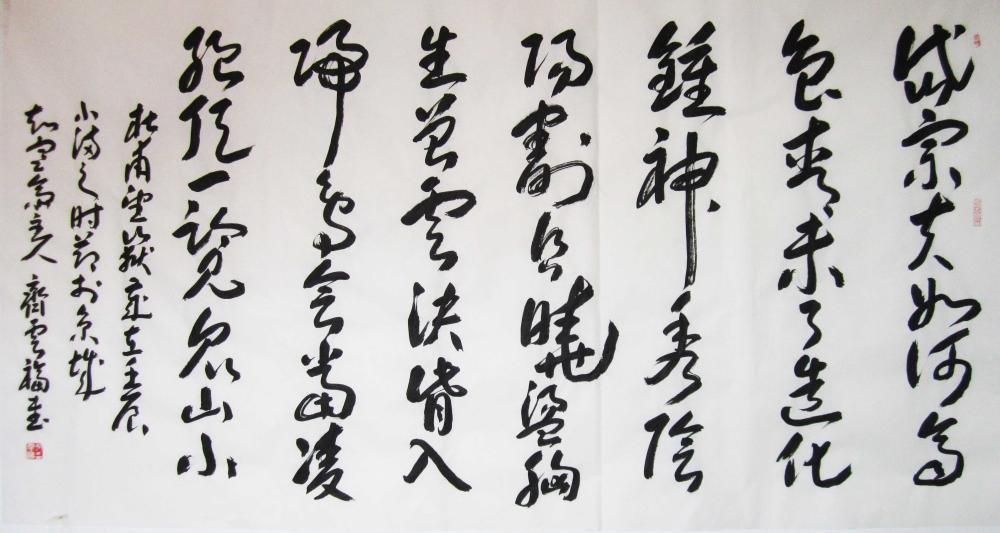 岱宗夫如何齊
魯青未了造化
鍾神秀陰
陽割昏曉盪胸
生曾雲決眥入
歸鳥會當凌
絕頂一覽眾山小
杜甫望嶽歲在壬辰
小滿之时節於京城
齋主人 齊雲福書